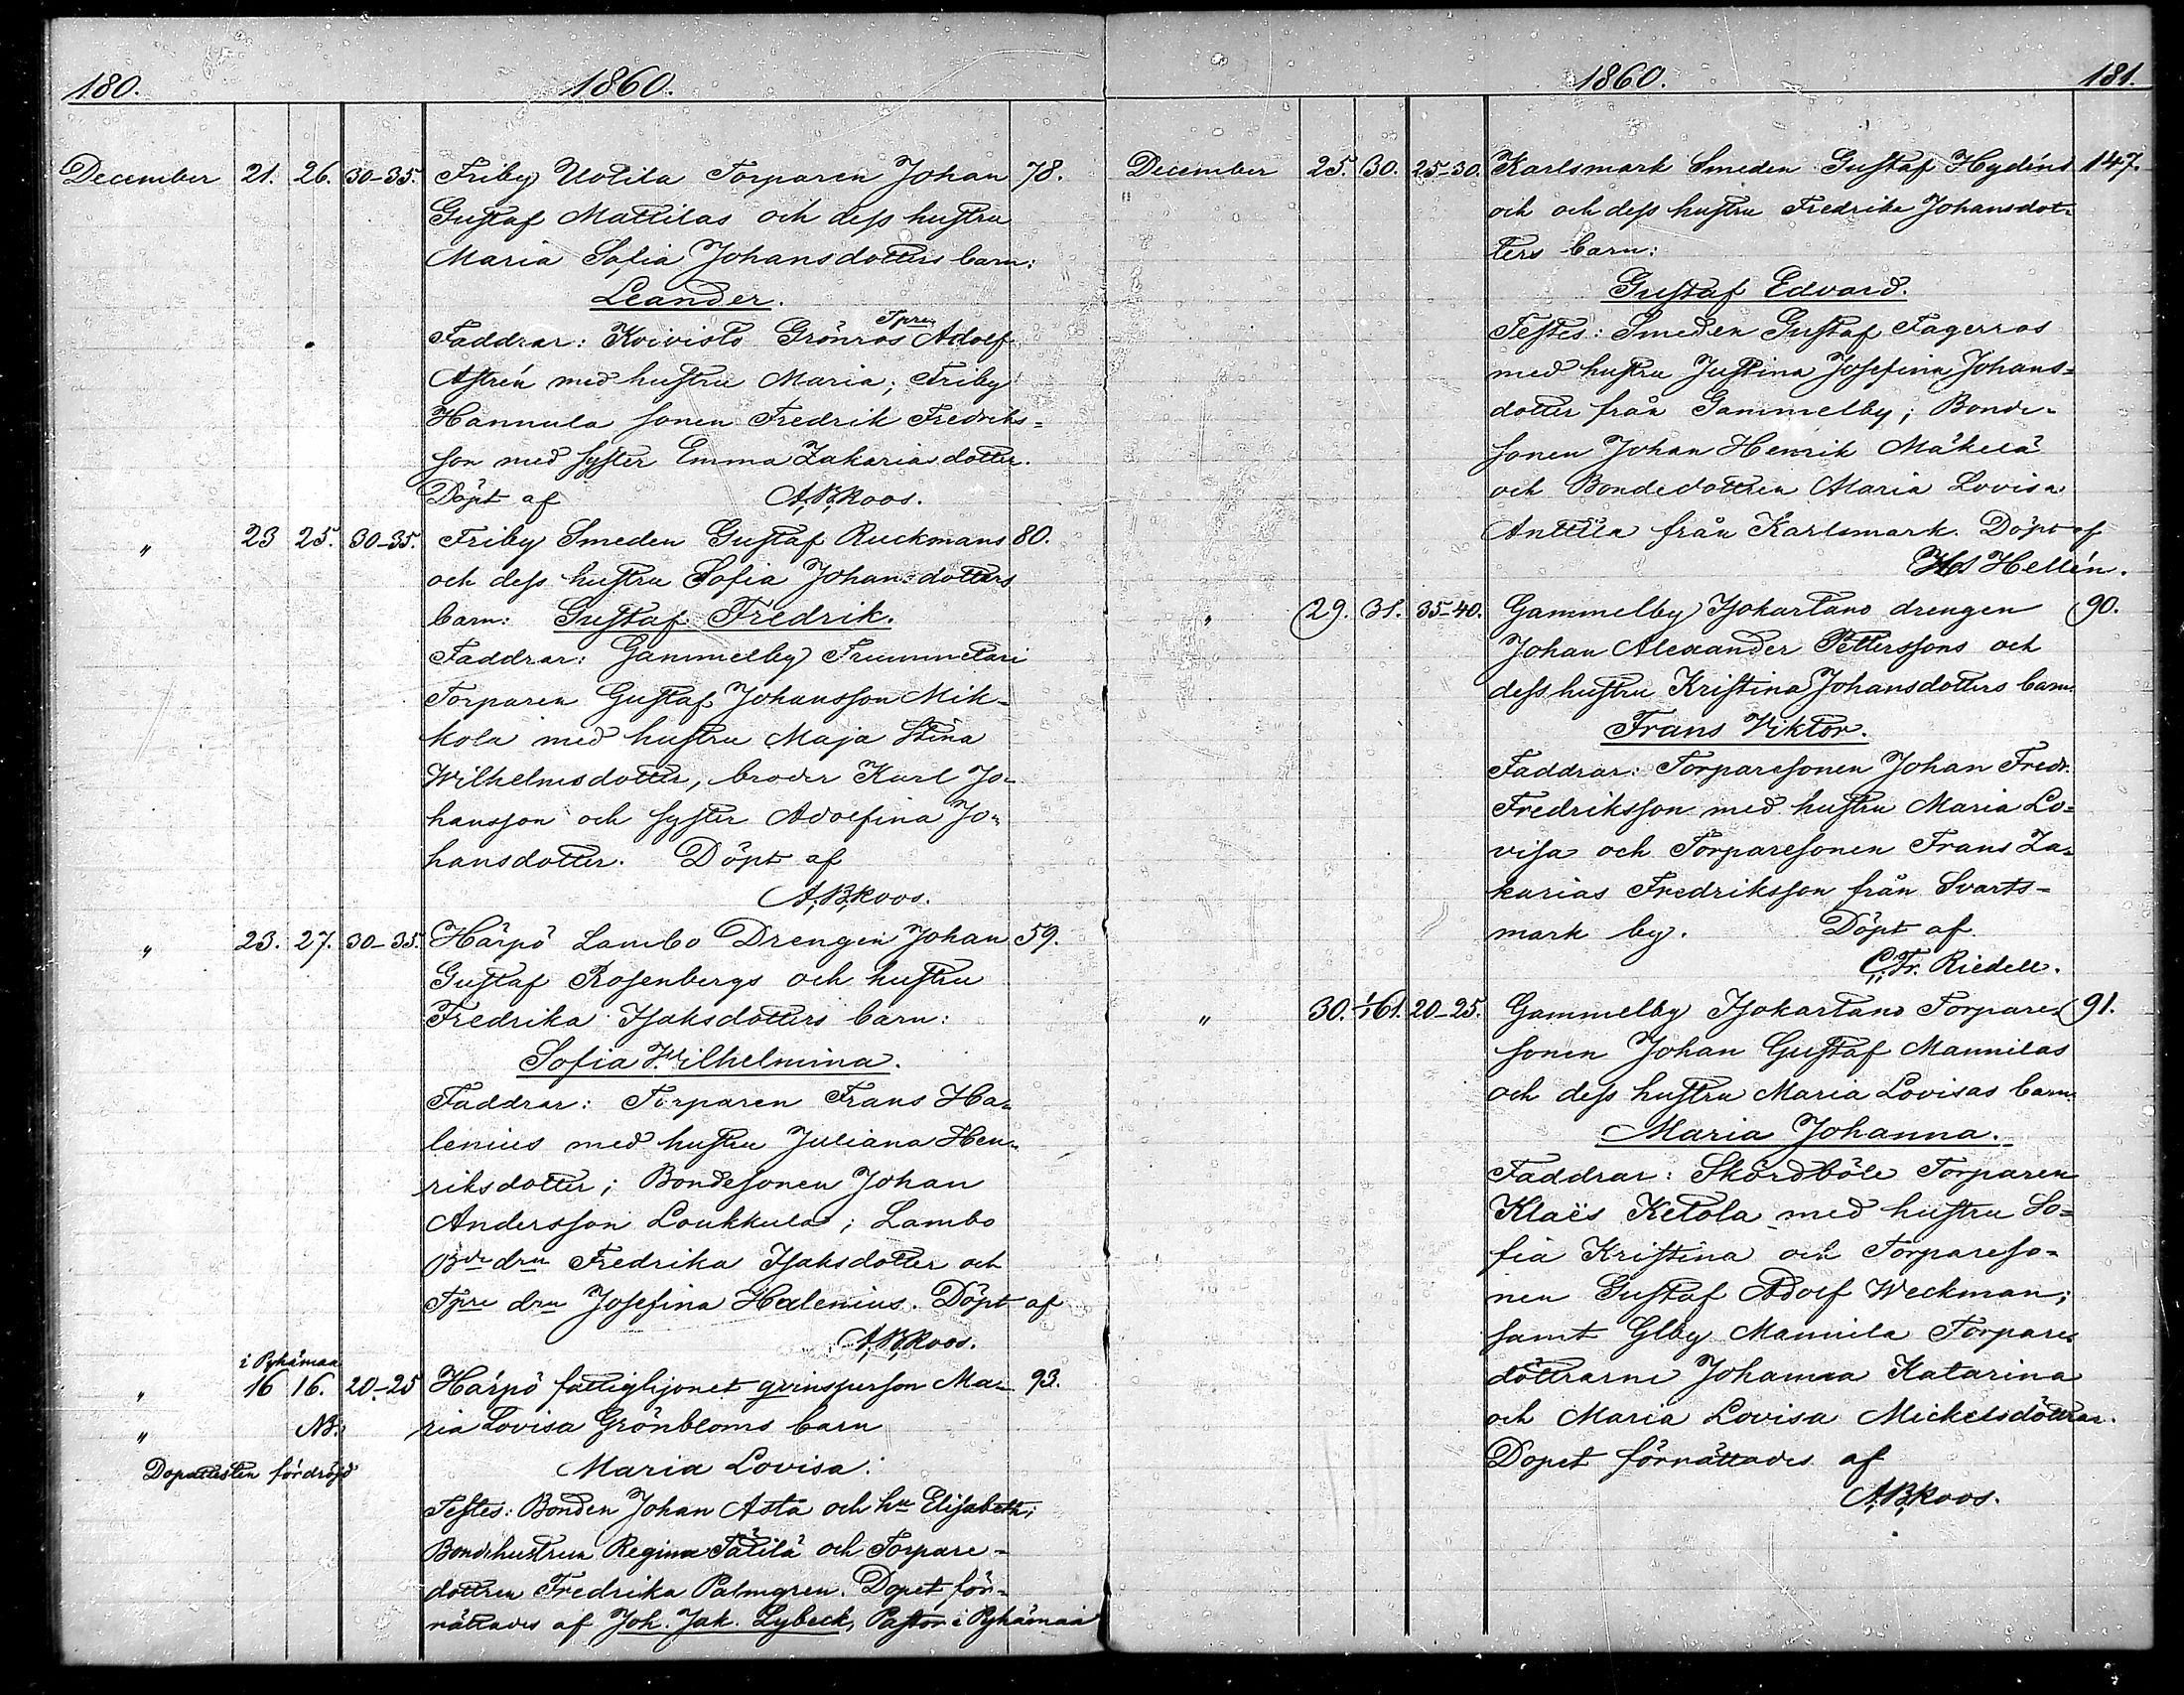 180. 1860.
December 21. 26. 30-35. Friby Uotila Torparen Johan 78.
Gustaf Mattilas och dess hustru
Maria Sofia Johansdotters barn:
Leander.
Tpren
Faddrar: Koivisto Grönros Adolf
Astrén med hustru Maria; Friby
Hannula sonen Fredrik Fredriks=
son med syster Emma Zakariadotter.
Döpt af A.B.Roos.
" 23 25. 30-35. Friby Smeden Gustaf Ruckmans 80.
och dess hustru Sofia Johansdotters
barn: Gustaf Fredrik.
Faddrar: Gammelby Trummetari
Torparen Gustaf Johansson Mik=
kola med hustru Maja Stina
Wilhelmsdotter, broder Karl Jo=
hansson och syster Adolfina Jo=
hansdotter. Döpt af
A.B.Roos.
" 23. 27. 30-35. Härpö Lambo Drengen Johan 59.
Gustaf Rosenbergs och hustru
Fredrika Isaksdotters barn:
Sofia Wilhelmina.
Faddrar: Torparen Frans Ha=
lenius med hustru Juliana Hen=
riksdotter; Bondesonen Johan
Andersson Loukkula; Lambo
Bde drn Fredrika Isaksdotter och
Tpre drn Josefina Halenius. Döpt af
A.B.Roos.
i Pyhämaa
" 16 16. 20-25 Härpö fattighjonet qvinsperson Ma= 93.
" NB. ria Lovisa Grönbloms barn
Dopattesten fördröjd Maria Lovisa:
Testes: Bonden Johan Asta och hu Elisabeth;
Bondehustrun Regina Tätilä och Torpare=
dottren Fredrika Palmgren. Dopet för=
rättades af Joh. Jak. Lybeck, Pastor i Pyhämaa
1860. 181.
December 25. 30. 25-30. Karlsmark Smeden Gustaf Hydéns 147.
" och och dess hustru Fredrika Johansdot=
ters barn:
Gustaf Edvard.
Testes: Smeden Gustaf Fagerros
med hustru Justina Josefina Johans=
dotter från Gammelby; Bonde=
sonen Johan Henrik Mäkelä
och Bondedottren Maria Lovisa
Anttila från Karlsmark. Döpt af
Hellén.
" 29. 31. 35-40. Gammelby Isokartano drengen 90.
Johan Alexander Petterssons och
dess hustru Kristina Johansdotters barn
Frans Viktor.
Faddrar: Torparesonen Johan Fredr.
Fredriksson med hustru Maria Lo=
visa och Torparesonen Frans Za=
karias Fredriksson från Svarts=
mark by. Döpt af
C.Fr. Riedell.
" 30. 1/1 61. 20-25. Gammelby Isokartano Torpare= 91.
sonen Johan Gustaf Mannilas
och dess hustru Maria Lovisas barn:
Maria Johanna.
Faddrar: Skördböle Torparen
Klaës Ketola med hustru So=
fia Kristina och Torpareso=
nen Gustaf Adolf Weckman;
samt Glby Mannila Torpare
döttrarne Johanna Katarina
och Maria Lovisa Mickelsdöttrar.
Dopet förrättades af
A.B.Roos.